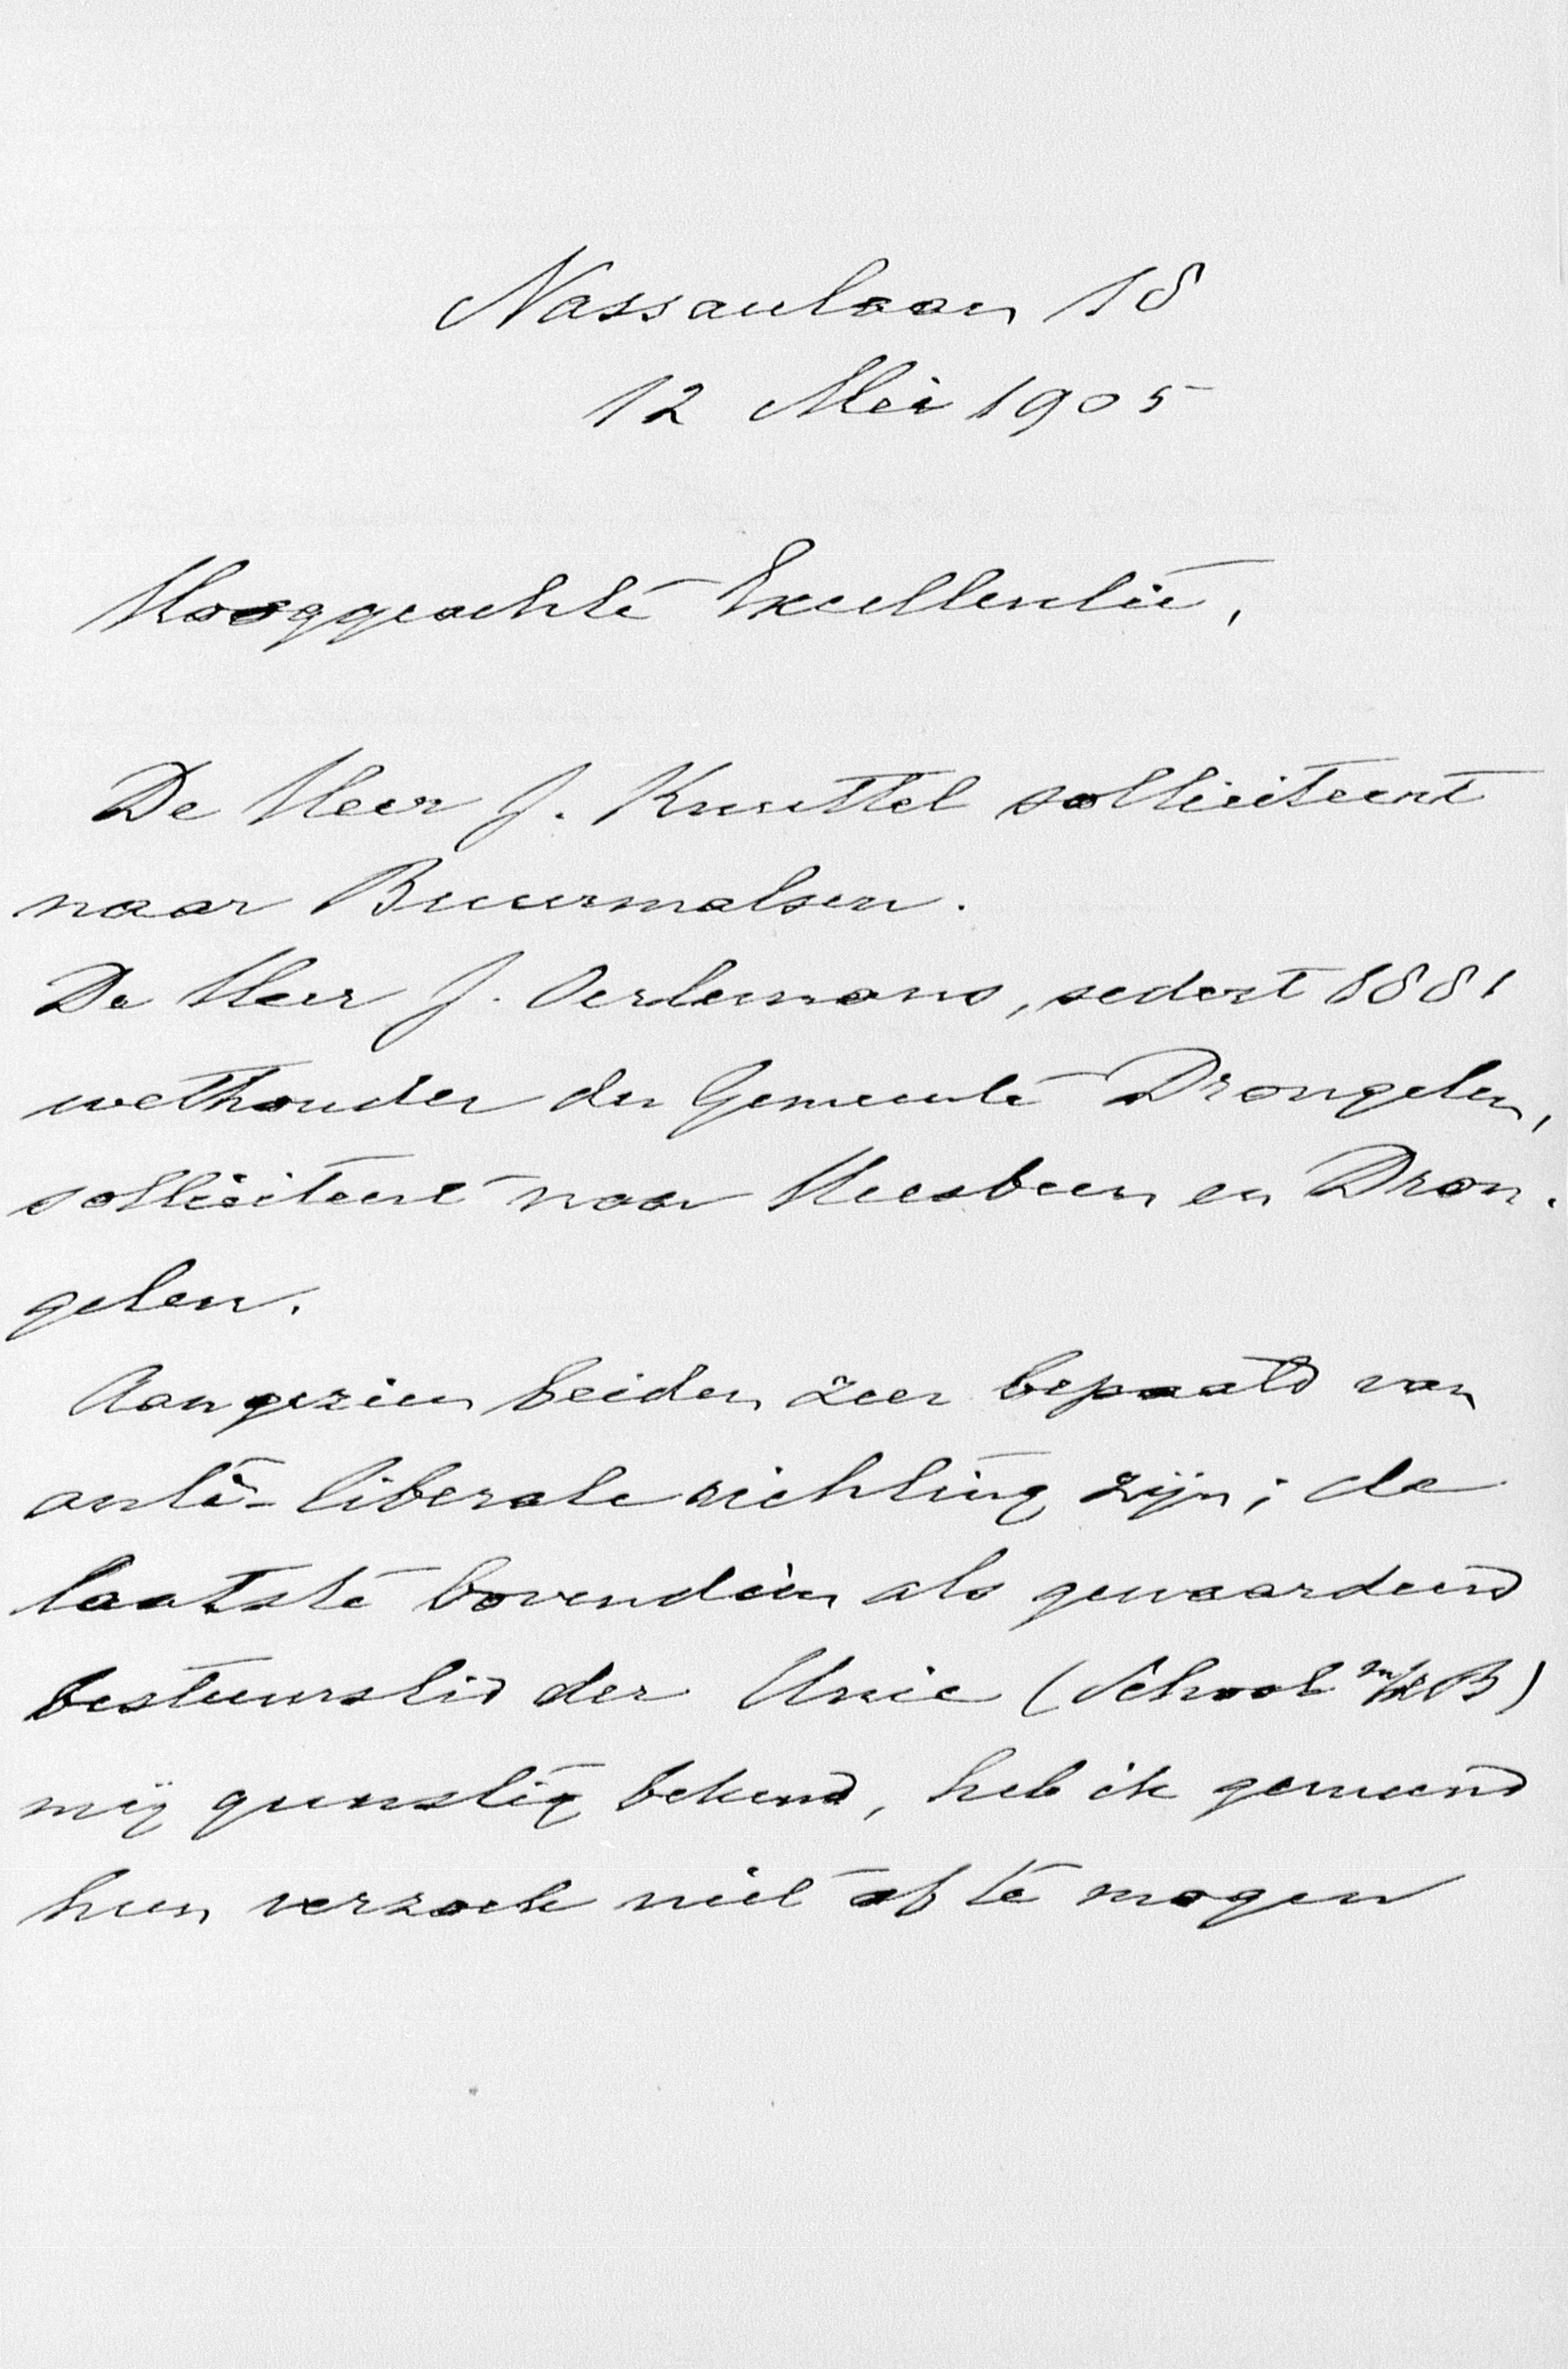 Nassaulaan 18
12 Mei 1905
Hooggeachte Excellentie,
De Heer J. Knuttel solliciteert
naar Buurmalsen.
De Heer J. Oerlemans, sedert 1881
wethouder der Gemeente Drongelen,
solliciteert naar Meeuwen en Dron-
gelen.
Aangezien beiden zeer bepaald van
anti-liberale richting zijn; de
laatste bovendien als gewaardeerd
bestuurslid der Unie (School m/d B)
mij gunstig bekend, heb ik gemeend
hun verzoek niet af te mogen